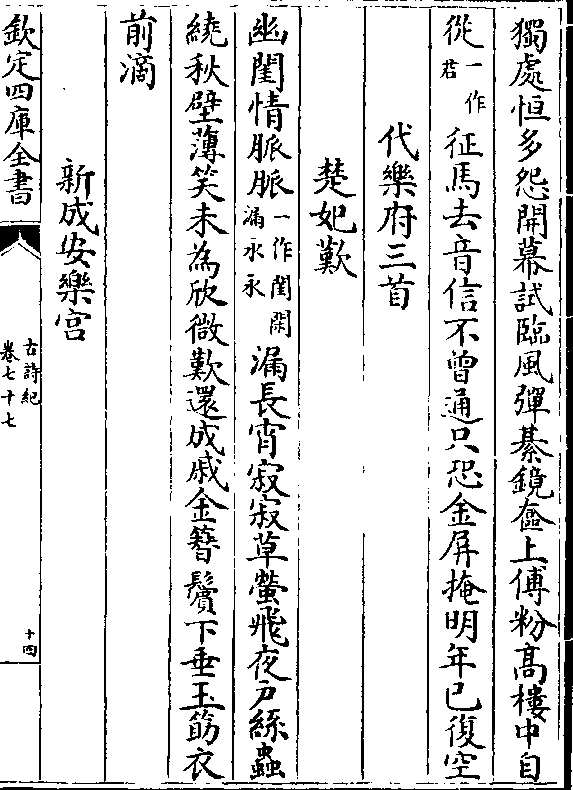 獨處恒多怨開幕試臨風彈棊鏡奩上傅粉高樓中自
從一作君征馬去音信不曾通只恐金屏掩明年已復空
代樂府三首
楚妃歎
幽閨情脈脈一作閨閑漏水永漏長宵寂寂草螢飛夜戶絲蟲
繞秋壁薄笑未為欣微歎還成戚金簪鬢下垂玉筯衣
前滴
新成安樂宮
欽定四庫全書
古詩紀
卷七十七
十四